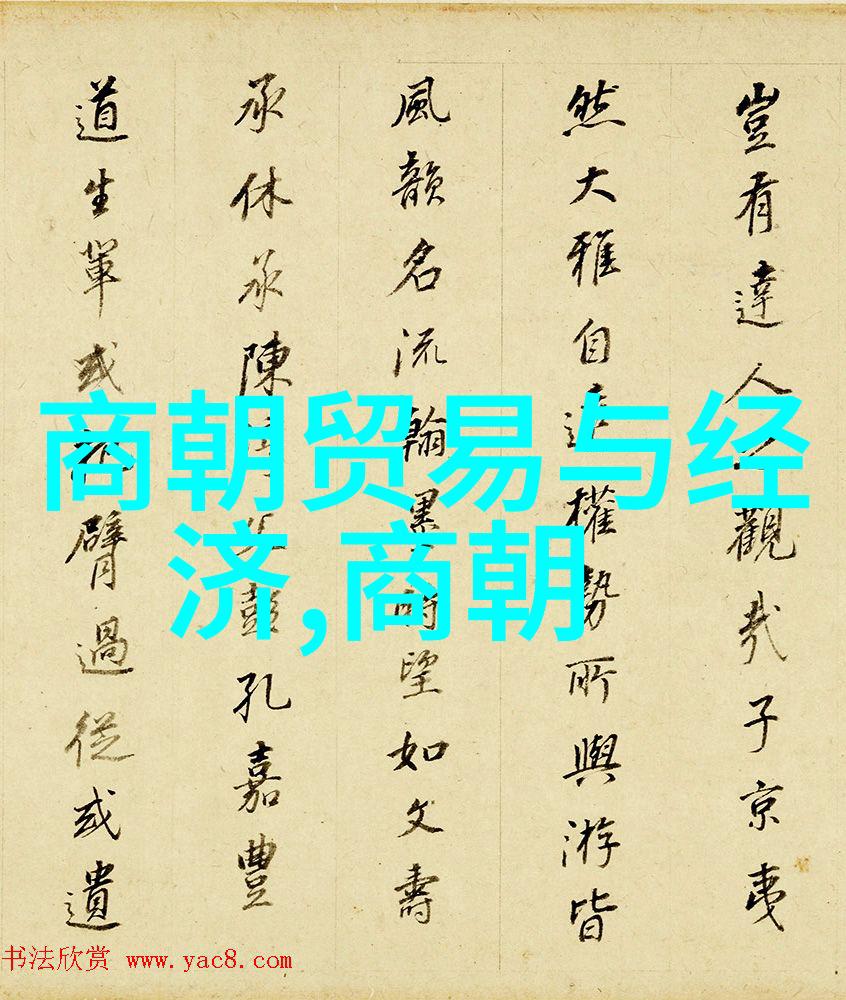 豈有達人觀哉子京夷
然大雅自權勢所與游皆
風韻名流翰墨時望如文壽
承休承陳彭孔嘉豐
道生輩或臂過從或遺
商朝贸易与经
济,商朝
书法欣赏 www.yac8.com